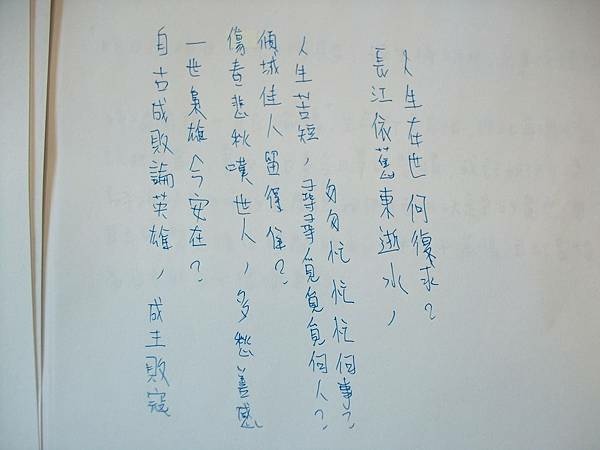 人生在世何復求?
長江依舊東逝水,
匆匆忙忙忙何事?
人生苦短,尋尋覓覓覓何人?
傾城佳人留得住?
傷春悲秋嘆世人,多愁善感
一世梟雄今安在?
自古成敗論英雄,成王敗寇